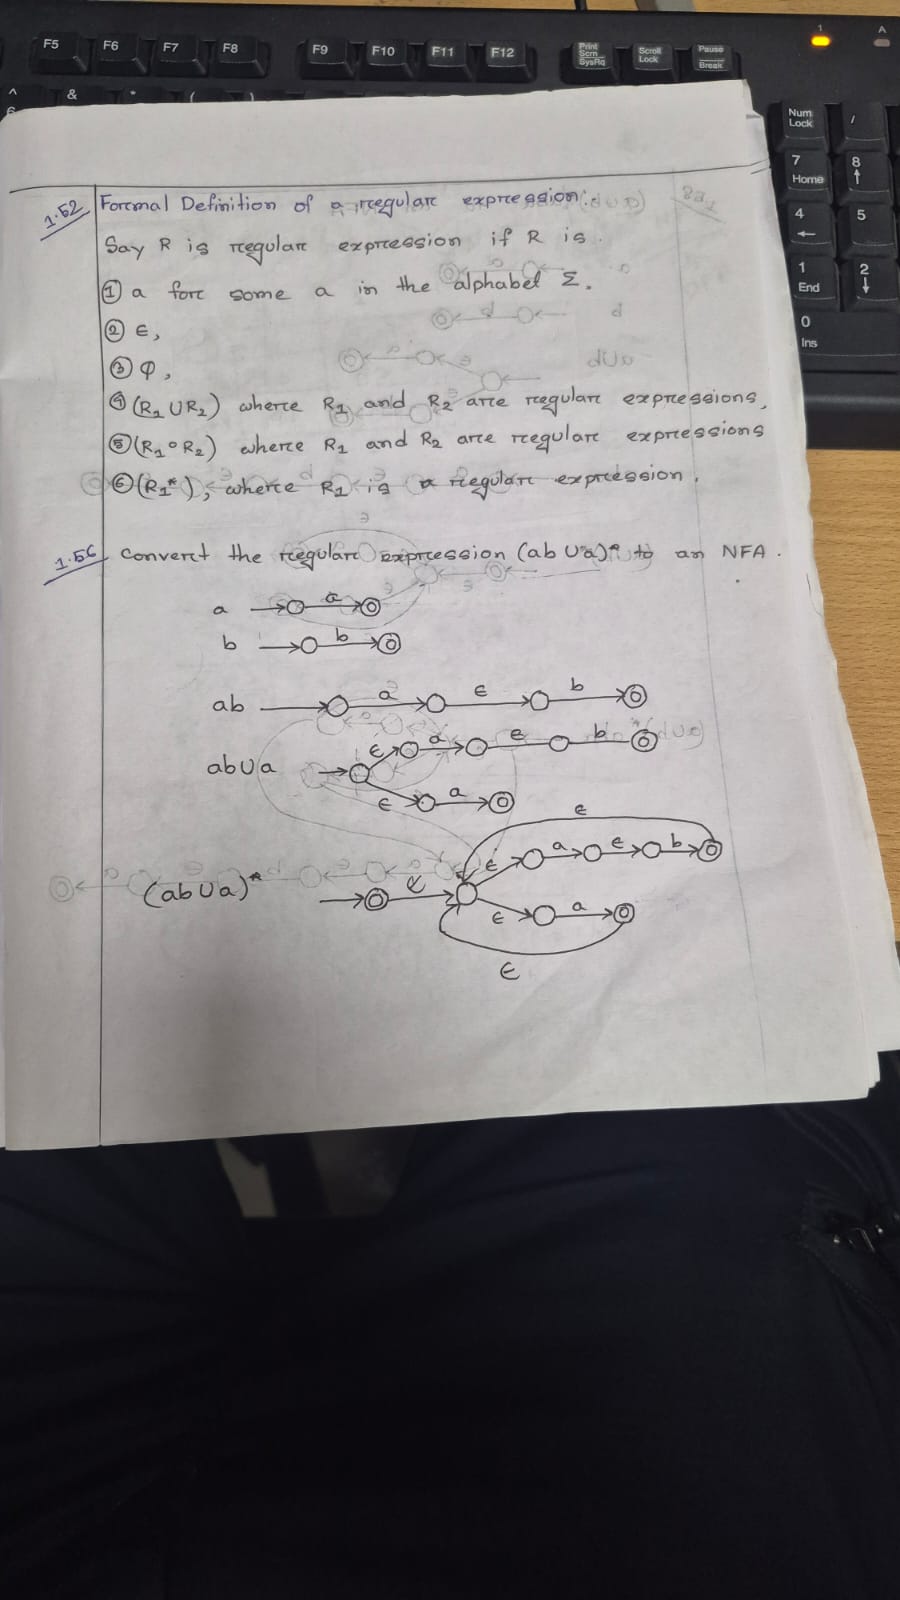 F5 F6 F7 F8 F9 F10 F11 F12 Print Scrn SysRq Scroll Lock Pause Break
1 A
^ & * ( )
6
Num Lock /
7 Home 8
4 5
1 End 2
0 Ins
1.52 Formal Definition of a regular expression:
Say R is regular expression if R is
① a for some a in the alphabet Σ.
② ϵ,
③ φ,
④ (R₁ ∪ R₂) where R₁ and R₂ are regular expressions,
⑤ (R₁ ∘ R₂) where R₁ and R₂ are regular expressions
⑥ (R₁*), where R₁ is a regular expression.
1.56 Convert the regular expression (ab ∪ a)* to an NFA.
a a
b b
ab a ϵ b
ab∪a ϵ a ϵ b
ϵ a
ϵ
(ab∪a)* ϵ ϵ a ϵ b
ϵ a
ϵ